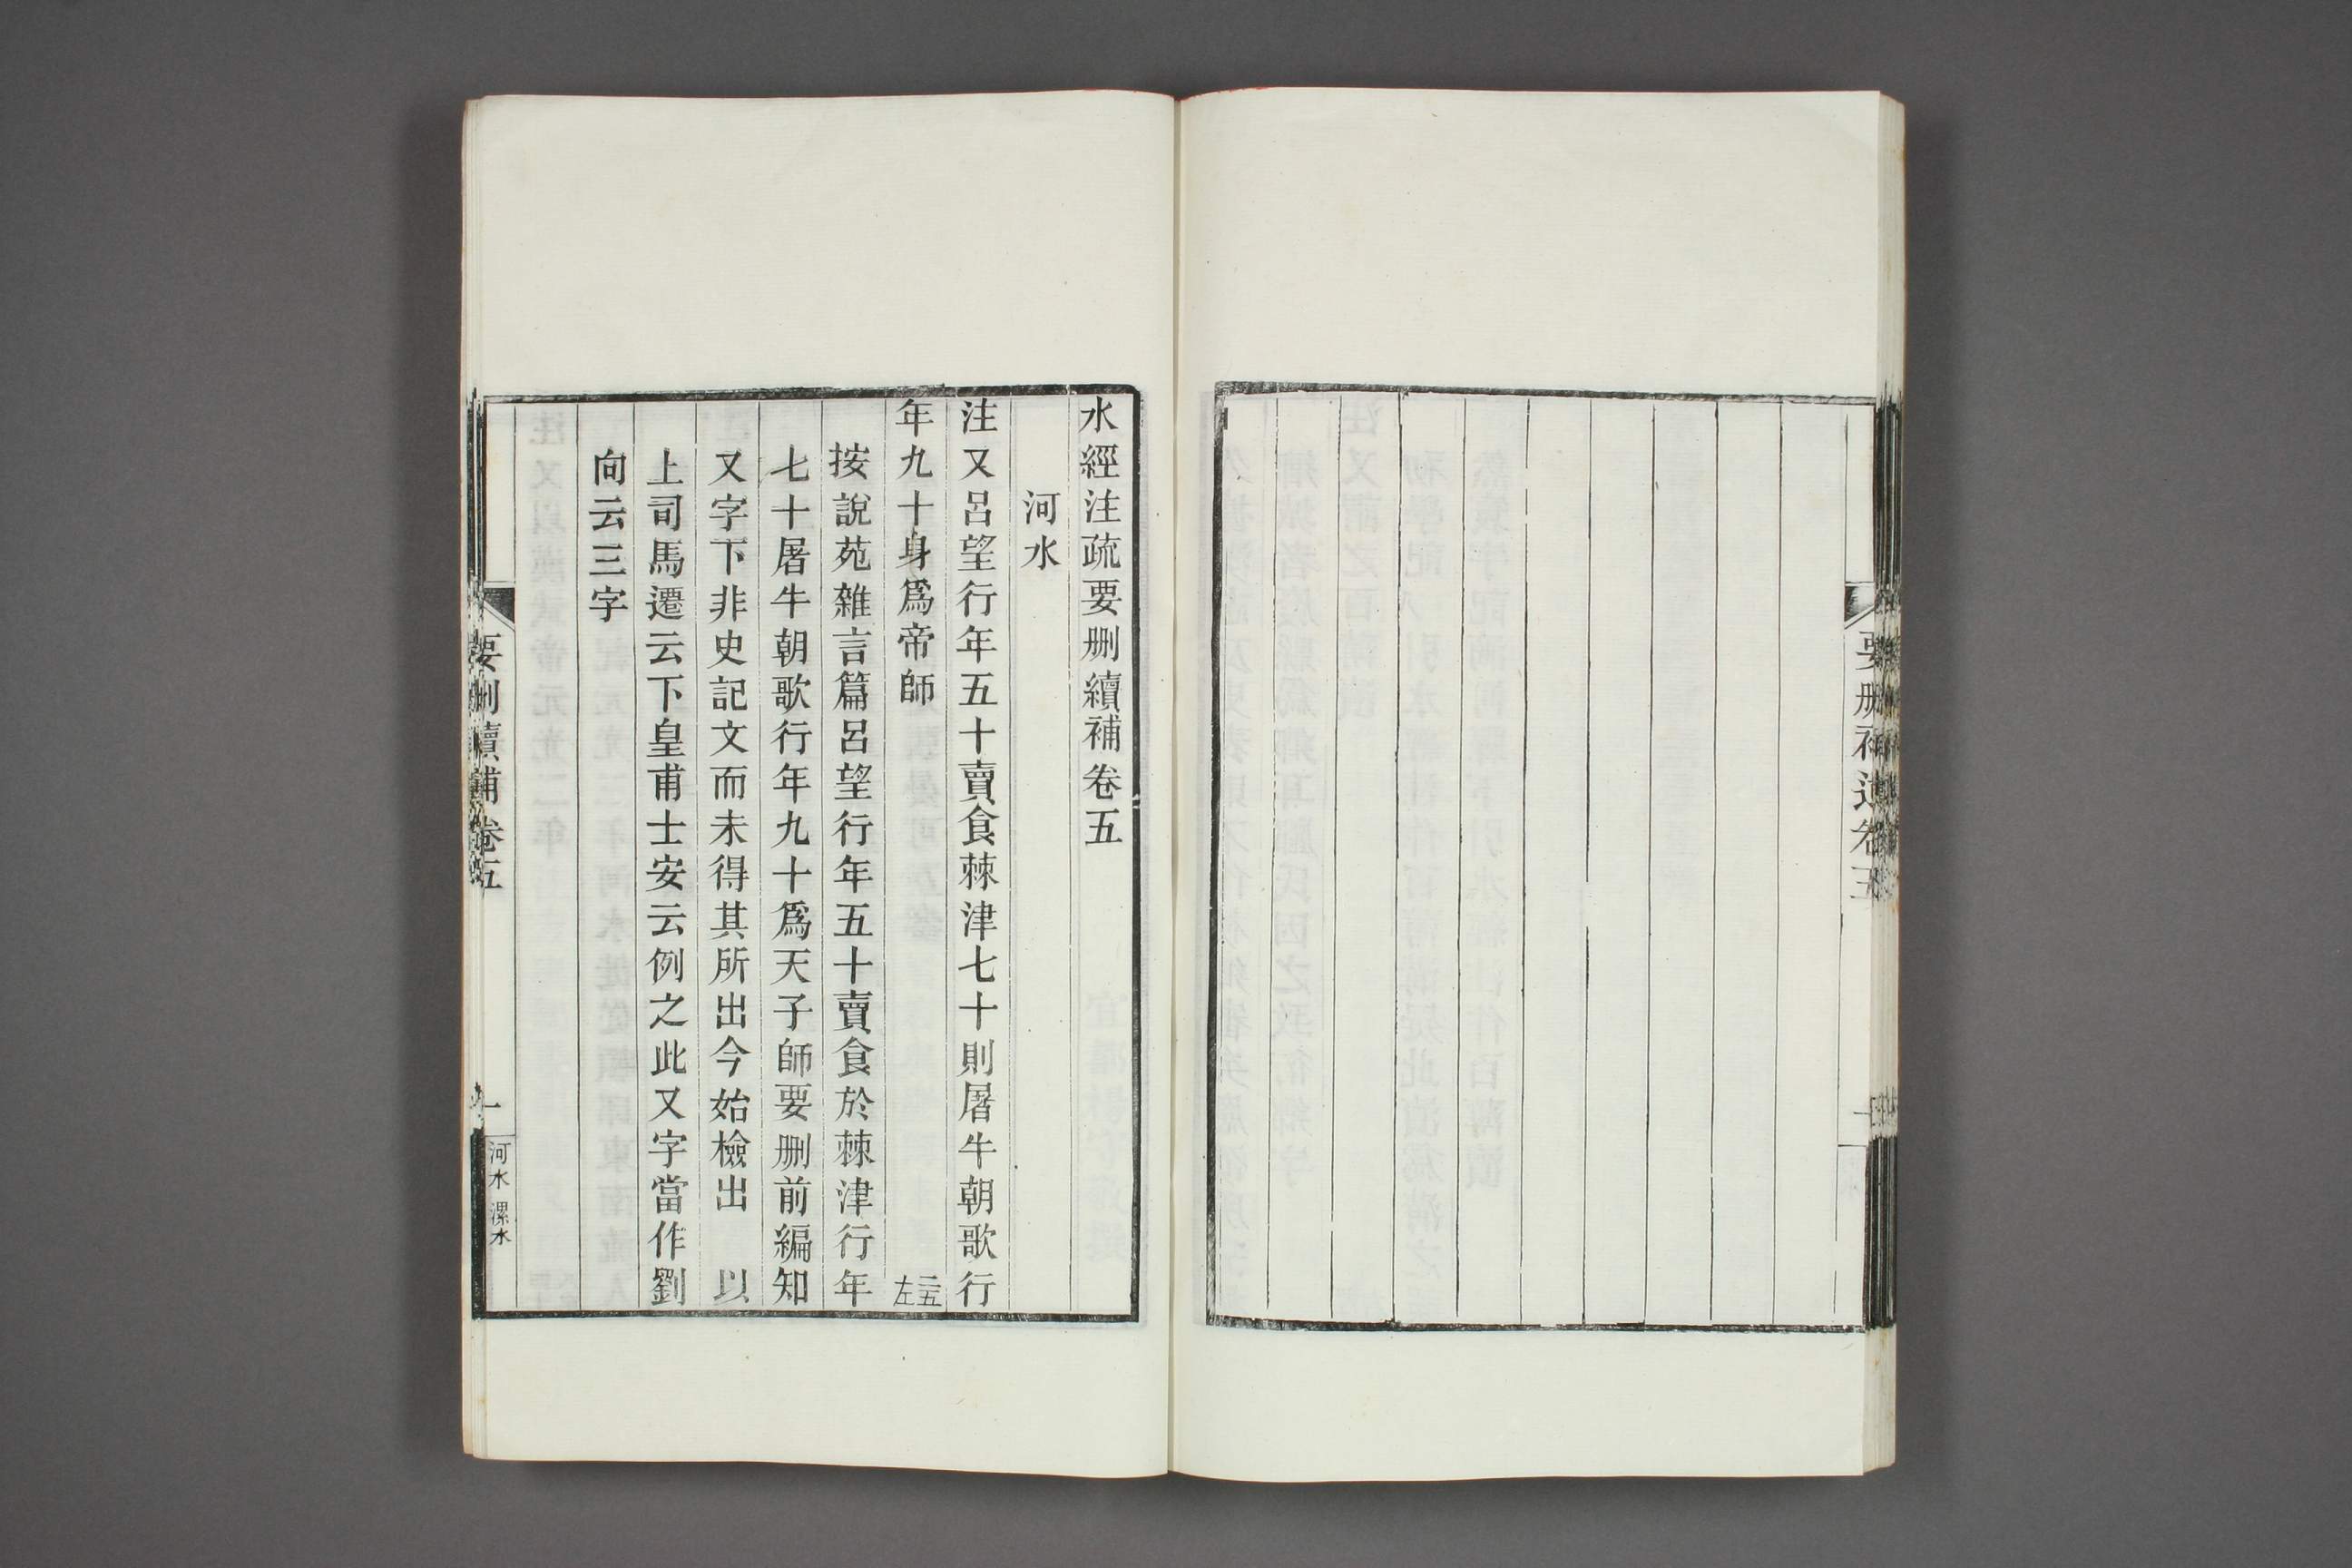 要刪補遺卷五
水經注疏要刪續補卷五
河水
注又呂望行年五十賣食棘津七十則屠牛朝歌行
年九十身爲帝師
二五
左
按說苑雜言篇呂望行年五十賣食於棘津行年
七十屠牛朝歌行年九十爲天子師要刪前編知
又字下非史記文而未得其所出今始檢出 以
上司馬遷云下皇甫士安云例之此又字當作劉
向云三字
要刪續補 卷五
一
河水 漯水